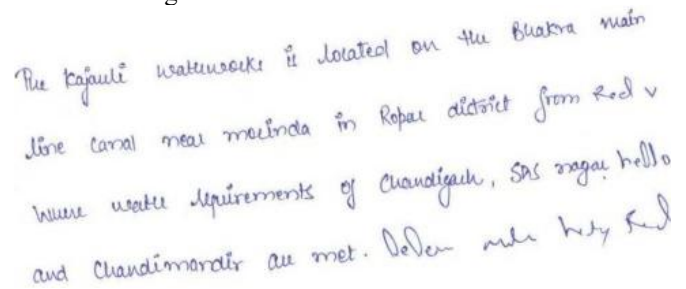 The Kajauli waterworks is located on the Bhakra main
line canal near morinda in Ropar district from Red v
where water requirements of Chandigarh, SAS nagar hello
and Chandimandir are met.